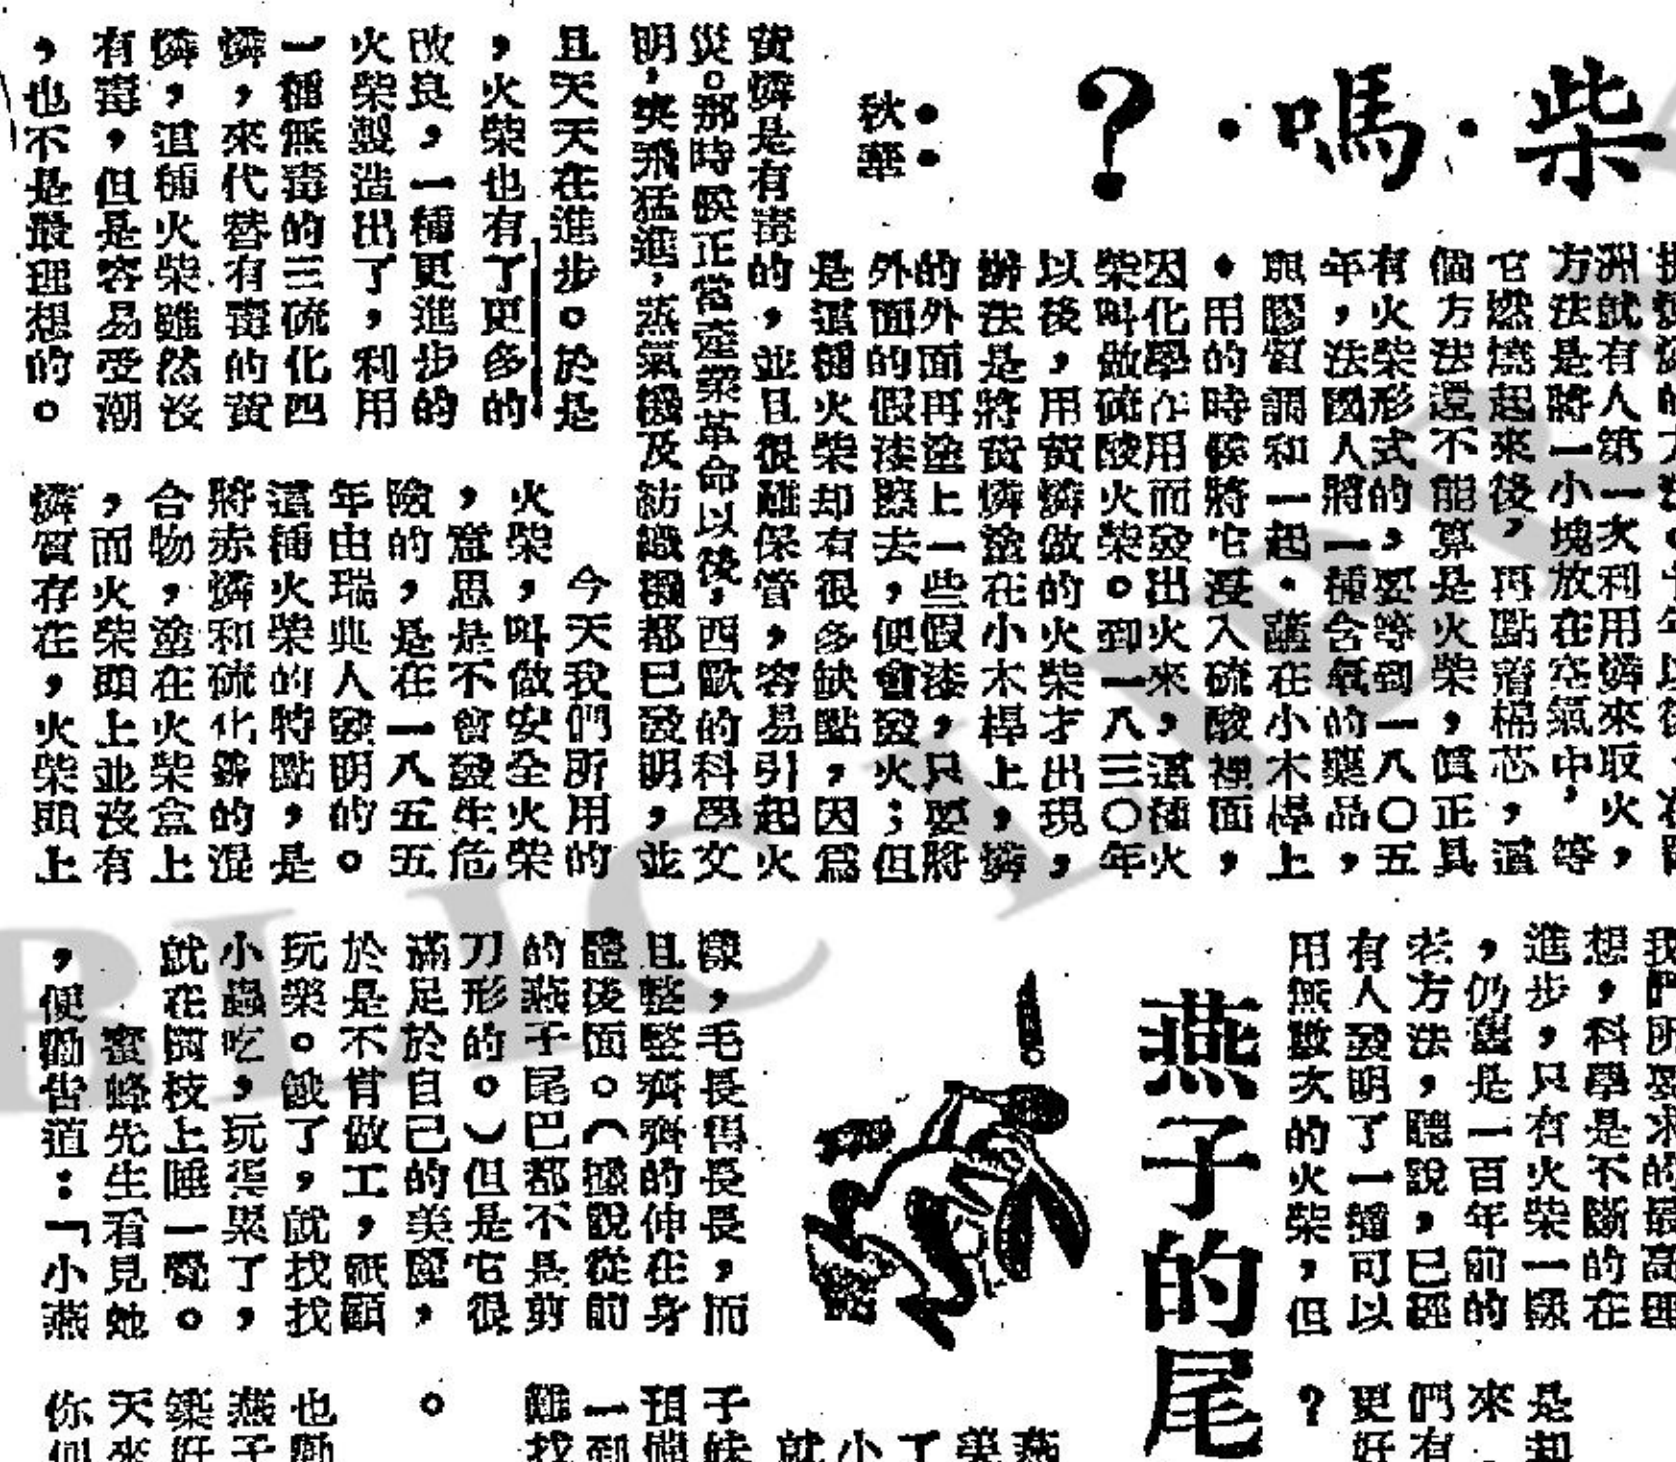 柴·嗎·?
秋華:
洲就有人第一次利用燐來取火,
方法是將一小塊放在空氣中,等
它燃燒起來後,再點着棉芯,這
個方法還不能算是火柴,眞正具
有火柴形式的,要等到一八〇五
年,法國人將一種含氧的藥品,
與膠質調和一起。蘸在小木桿上
。用的時候將它浸入硫酸裡面,
因化學作用而發出火來,這種火
柴叫做硫酸火柴。到一八三〇年
以後,用黃燐做的火柴才出現,
辦法是將黃燐塗在小木桿上,燐
的外面再塗上一些假漆,只要將
外面的假漆擦去,便會發火;但
是這種火柴却有很多缺點,因爲
黃燐是有毒的,並且很難保管,容易引起火
災。那時候正當產業革命以後,西歐的科學文
明,突飛猛進,蒸氣機及紡織機都已發明,並
且天天在進步。於是
,火柴也有了更多的
改良,一種更進步的
火柴製造出了,利用
一種無毒的三硫化四
燐,來代替有毒的黃
燐,這種火柴雖然沒
有毒,但是容易受潮
,也不是最理想的。
今天我們所用的
火柴,叫做安全火柴
,意思是不會發生危
險的,是在一八五五
年由瑞典人發明的。
這種火柴的特點,是
將赤燐和硫化銻的混
合物,塗在火柴盒上
,而火柴頭上並沒有
燐質存在,火柴頭上
我們所要求的最高理
想,科學是不斷的在
進步,只有火柴一樣
,仍舊是一百年前的
老方法,聽說,已經
有人發明了一種可以
用無數次的火柴,但
是却
來
們有
更好
?
燕子的尾
樣,毛長得長長,而
且整整齊齊的伸在身
體後面。(據說從前
的燕子尾巴都不是剪
刀形的。)但是它很
滿足於自己的美麗,
於是不肯做工,祇顧
玩樂。餓了,就找找
小蟲吃,玩得累了,
就在樹枝上睡一覺。
蜜蜂先生看見她
,便勸告道:「小燕
燕
美
了
小
就
子妹
預備
一到
難找
。
也勸
燕子
築好
天來
你似